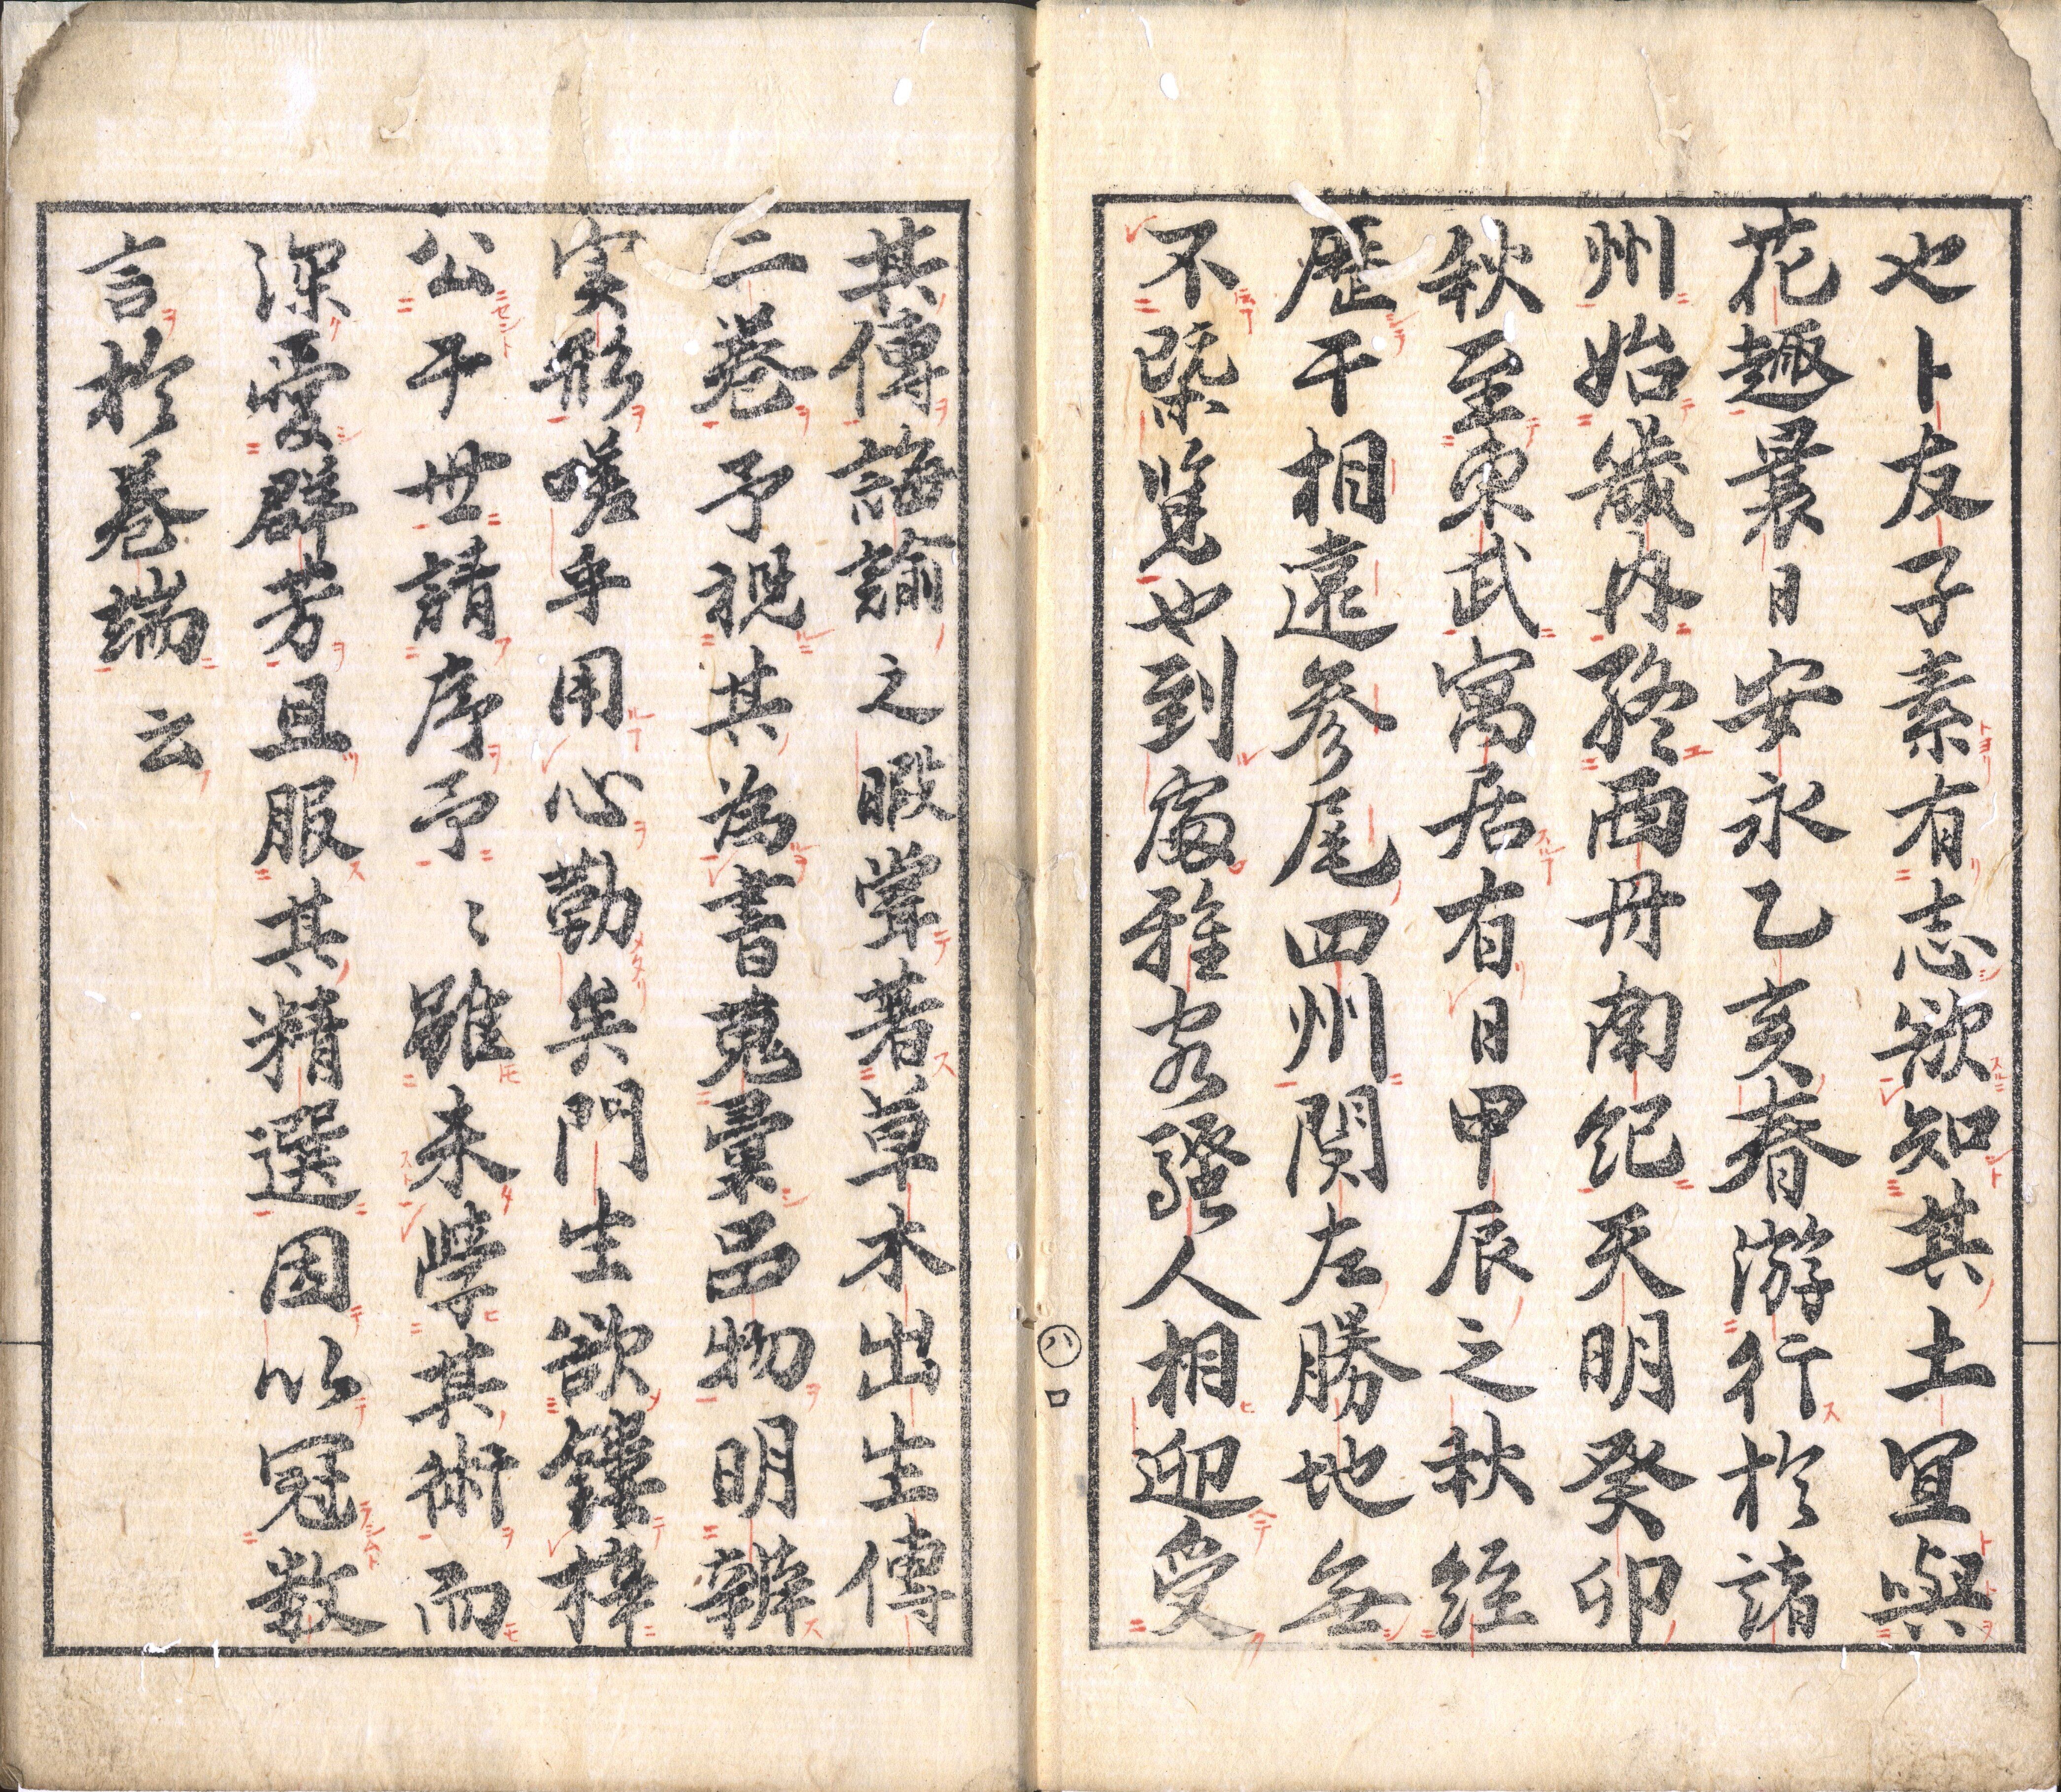 也卜友子素有志欲知其土宜與
花趣曩日安永乙亥春游行於諸
州始畿内終西丹南紀天明癸卯
秋至東武寓居有日甲辰之秋経
歴于相遠参尾四州関左勝地無
不槩覧也到處雅客騒人相迎受
其傳誨諭之暇甞著草木出生傳
二巻予視其為書蒐彙品物明辨
実形嗟乎用心勤矣門生欲鏤梓
公于世請序予〻雖未學其術而
深愛群芳且服其精選因以冠数
言於巻端云